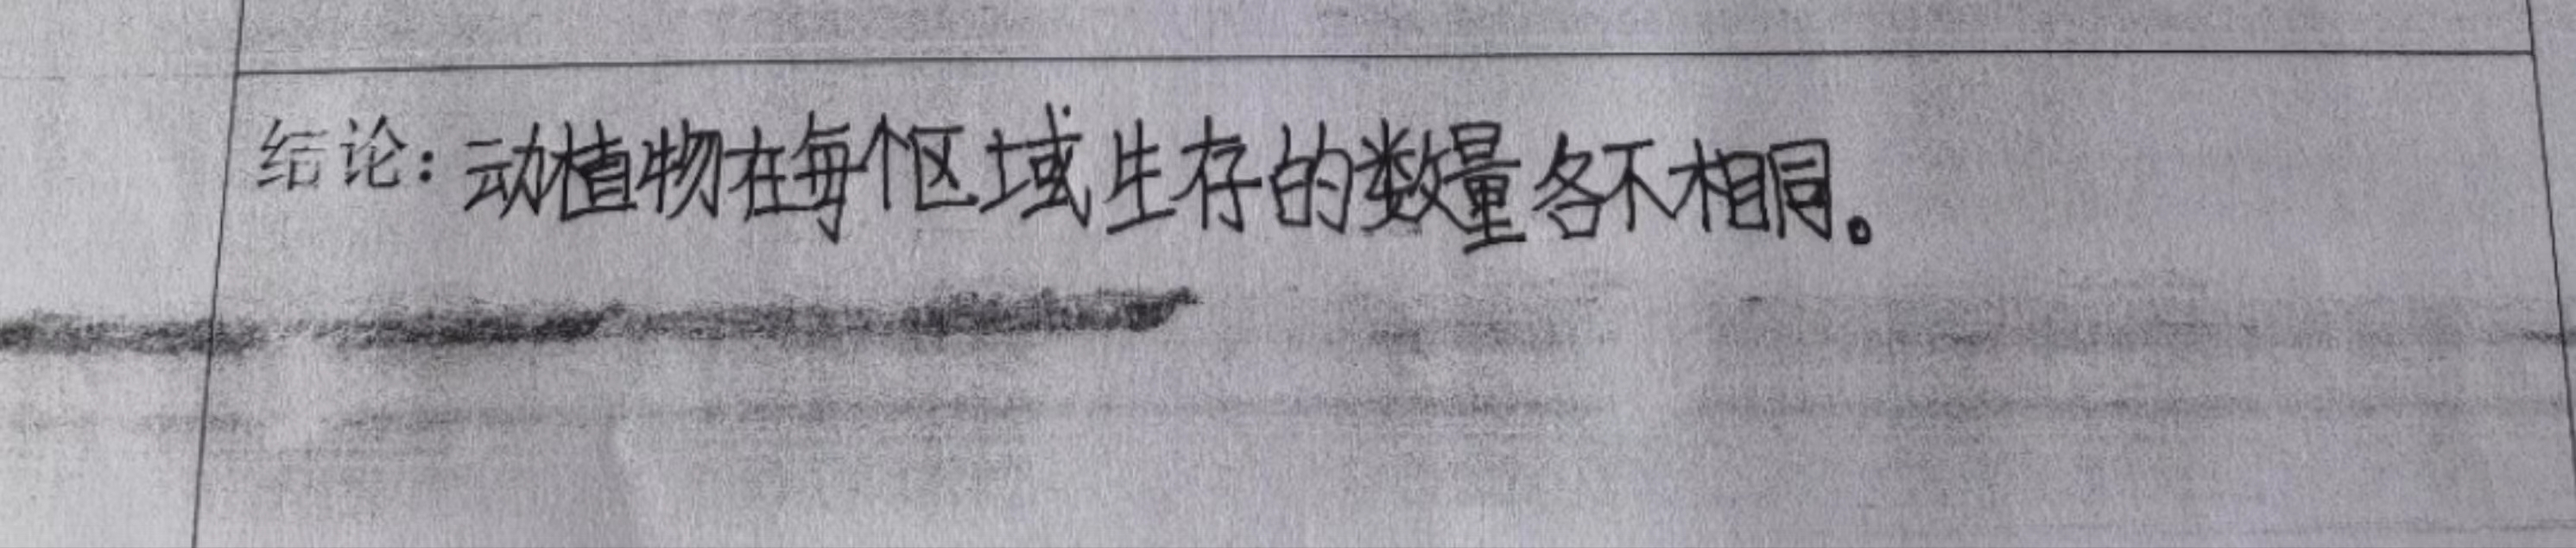 结论：动植物在每个区域生存的数量各不相同。